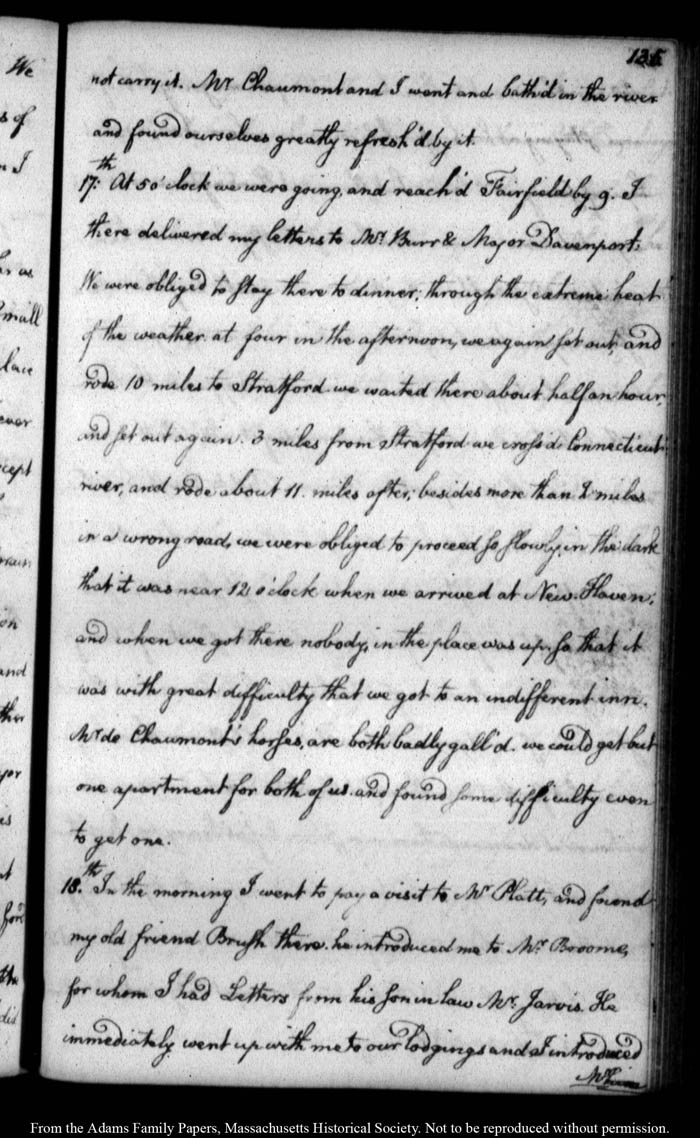 125
not carry it. Mr. Chaumont and I went and bath'd in the river
and found ourselves greatly refresh'd by it.
17:th At 5 o'clock we were going, and reach'd Fairfield by 9. I
there delivered my letters to Mr. Burr & Major Davenport.
We were obliged to stay there to dinner; through the extreme heat
of the weather. at four in the afternoon, we again set out, and
rode 10 miles to Stratford. we waited there about half an hour,
and set out again. 3 miles from Stratford we cross'd Connecticut
river, and rode about 11. miles after; besides more than 2 miles
in a wrong road, we were obliged to proceed so slowly, in the dark
that it was near 12 o'clock when we arrived at New-Haven;
and when we got there nobody, in the place was up, so that it
was with great difficulty that we got to an indifferent inn.
Mr de Chaumont's horses, are both badly gall'd. we could get but
one apartment for both of us. and found some difficulty even
to get one.
18.th In the morning I went to pay a visit to Mr Platt, and found
my old friend Brush there. he introduced me to Mr. Broome,
for whom I had Letters from his son in law Mr. Jarvis. He
immediately went up with me to our lodgings and I introduced
We
s of
I
as
Small
lace
ever
cept
main
on
and
the
From the Adams Family Papers, Massachusetts Historical Society. Not to be reproduced without permission.